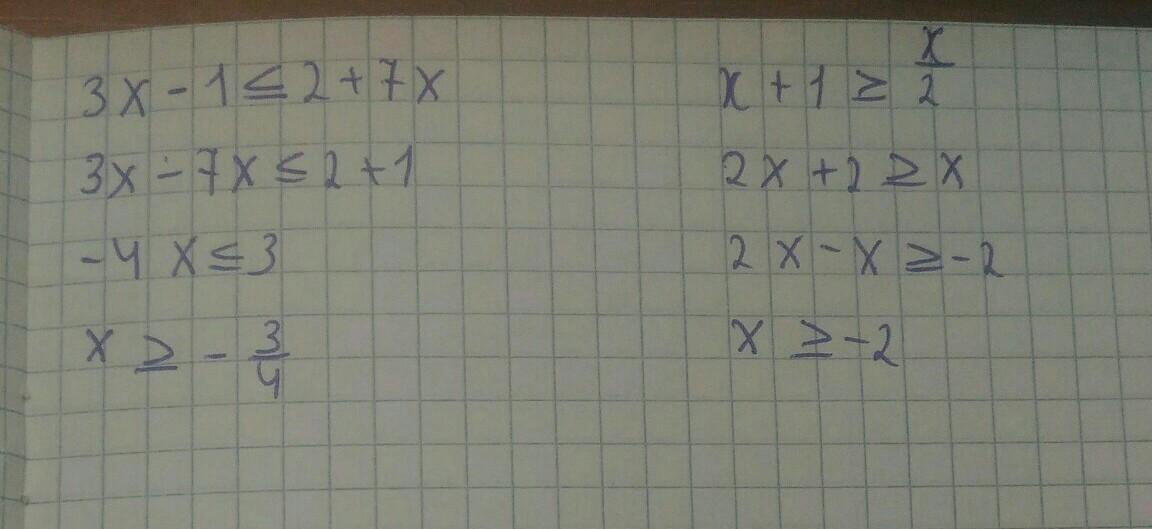 3x - 1 ≤ 2 + 7x
3x - 7x ≤ 2 + 1
-4x ≤ 3
x ≥ - 3/4
x + 1 ≥ x/2
2x + 2 ≥ x
2x - x ≥ -2
x ≥ -2